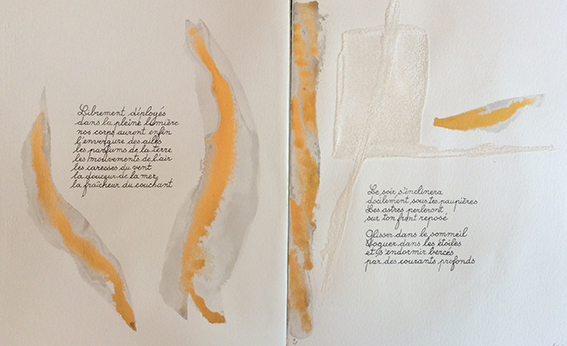 Librement déployés
dans la pleine lumière
nos corps auront enfin
l'envergure des ailes
les parfums de la terre
les mouvements de l'air
les caresses du vent
la douceur de la mer
la fraîcheur du couchant
Le soir s'inclinera
docilement sous tes paupières
Les astres perleront
sur ton front reposé
Glisser dans le sommeil
Voguer dans les étoiles
et s'endormir bercés
par des courants profonds